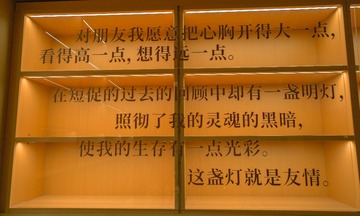 对朋友我愿意把心胸开得大一点,
看得高一点, 想得远一点。
在短促的过去的回顾中却有一盏明灯,
照彻了我的灵魂的黑暗,
使我的生存有一点光彩。
这盏灯就是友情。